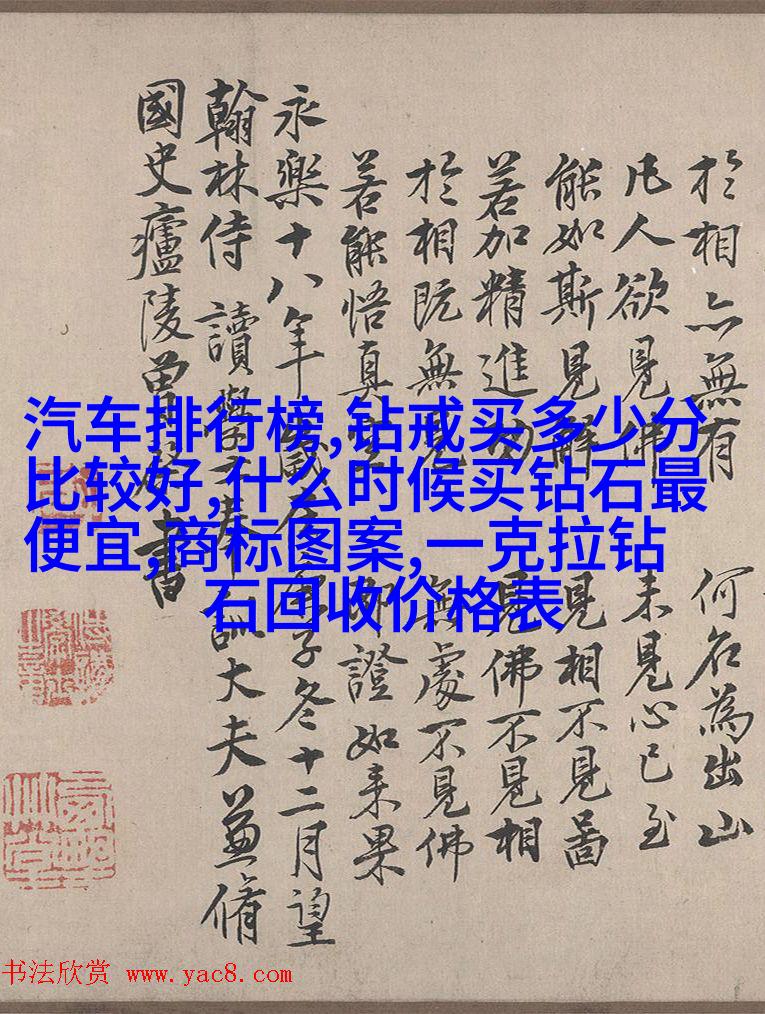 於相亦無有 何名為出山
凡人欲見佛 未見心已至
能如斯見解 見相不見啚
若加精進 見佛不見相
於相既無見 無處不見佛
若能悟真空 即證如来果
永樂十八年歲在庚子冬十二月望
翰林侍讀學士奉訓大夫兼脩
國史廬陵曾棨書
汽车排行榜,钻戒买多少分
比较好,什么时候买钻石最
便宜,商标图案,一克拉钻
石回收价格表
书法欣赏 www.yac8.com